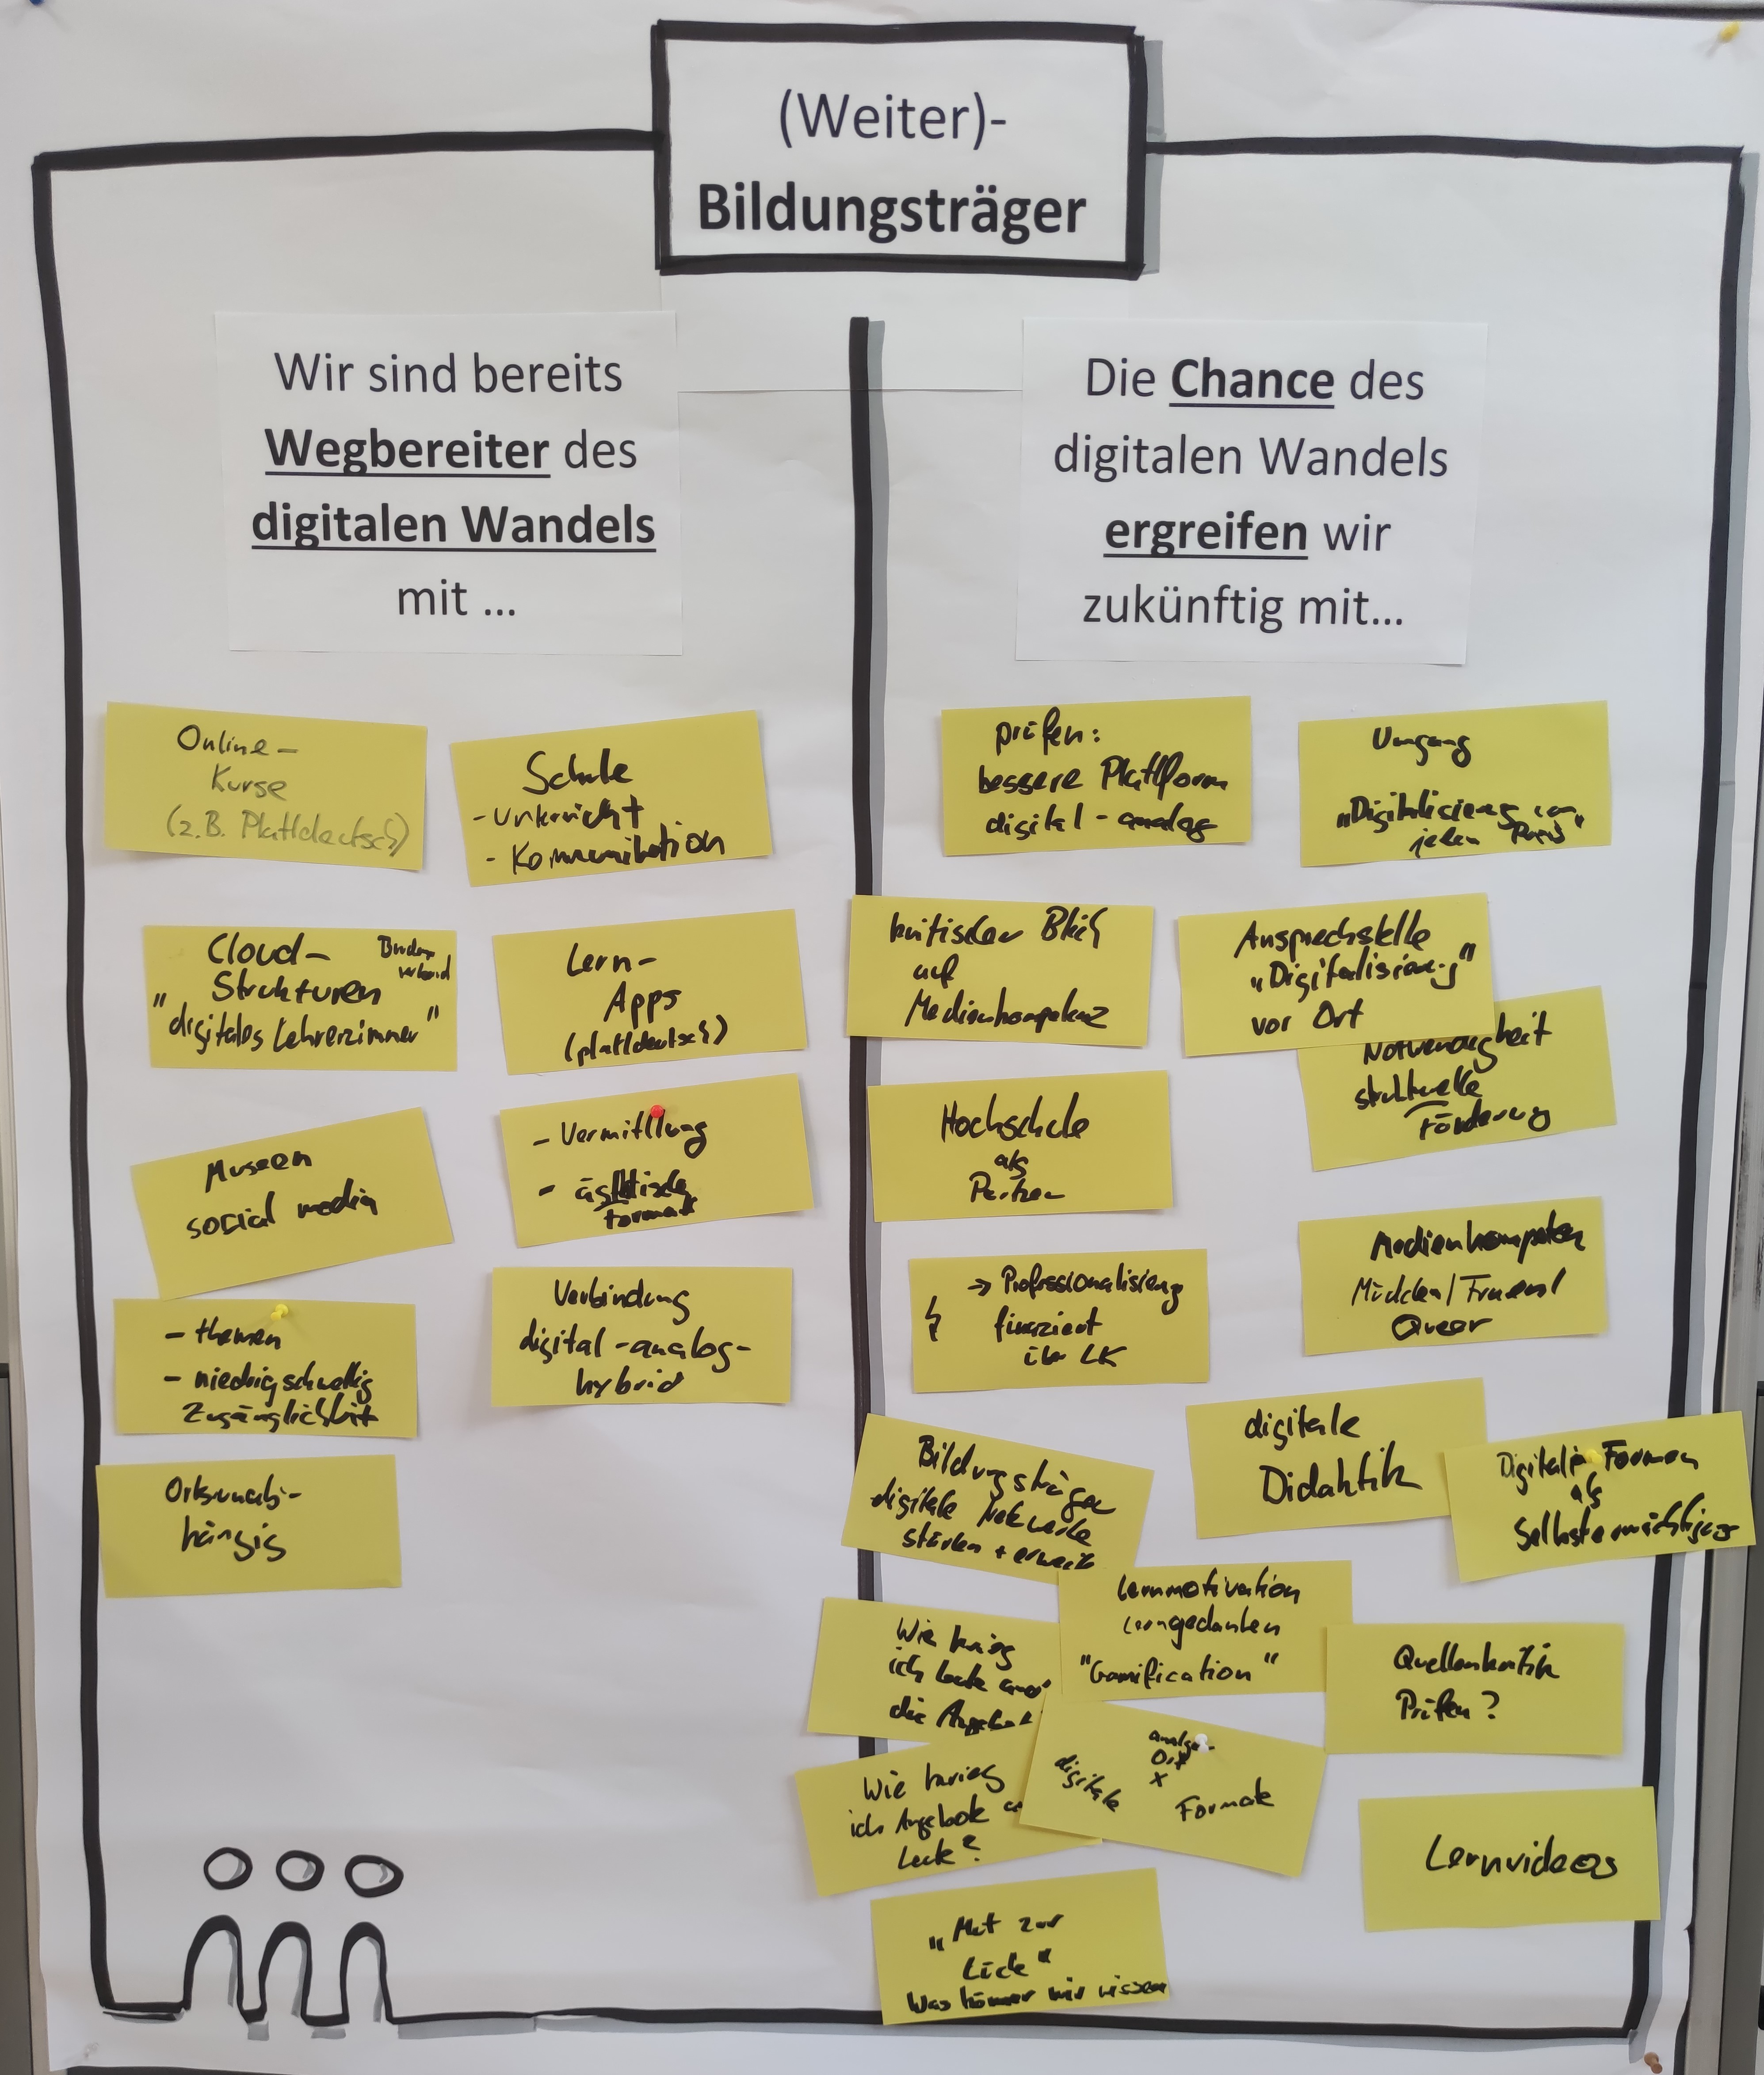 (Weiter)-
Bildungsträger
Wir sind bereits
Wegbereiter des
digitalen Wandels
mit ...
Online-
Kurse
(z.B. Plattdeutsch)
Schule
- Unterricht
- Kommunikation
Cloud-
Strukturen
"digitales Lehrerzimmer"
Lern-
Apps
(plattdeutsch)
Museen
social media
- Vermittlung
- ästhetische
Formate
- themen
- niedrigschwellig
Zugänglichkeit
Verbindung
digital-analog-
hybrid
Ortsunab-
hängig
Die Chance des
digitalen Wandels
ergreifen wir
zukünftig mit...
prüfen:
bessere Plattform
digital - analog
Umgang
„Digitalisierung um
jeden Preis"
kritischer Blick
auf
Medienkompetenz
Ansprechstelle
„Digitalisierung"
vor Ort
Notwendigkeit
strukturelle
Förderung
Hochschule
als
Partner
Medienkompeten
Mädchen/Frauen/
Queer
→ Professionalisierung
finanziert
über LK
Bildungsträger
digitale Netzwerke
stärken + erweit
digitale
Didaktik
Digitale Formen
als
Selbstermächtigung
Wie krieg
ich Leute
die Angebote
Lernmotivation
Lerngedanken
"Gamification"
Quellenkritik
Prüfen?
Wie krieg
ich Angebote
Leute?
analoger
Ort
x
digitale
Formate
Lernvideos
„Mut zur
Lücke"
Was können wir wissen